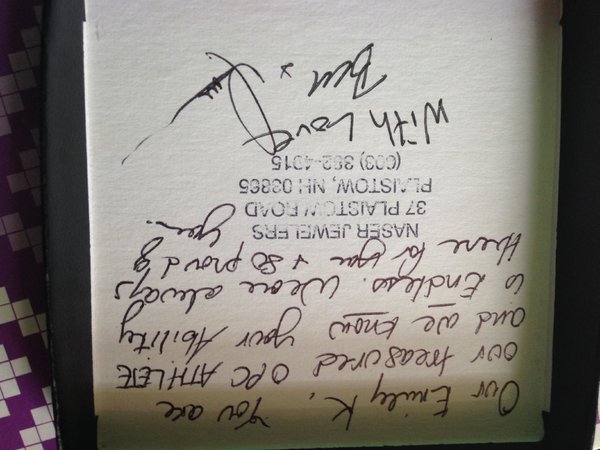 Our Emily K, You are
our treasured OPC ATHLETE
and we know your Ability
is Endless. We are always
there for you & so proud of
you.
NASER JEWELERS
37 PLAISTOW ROAD
PLAISTOW, NH 03865
(603) 382-4315
With Love,
Ben &